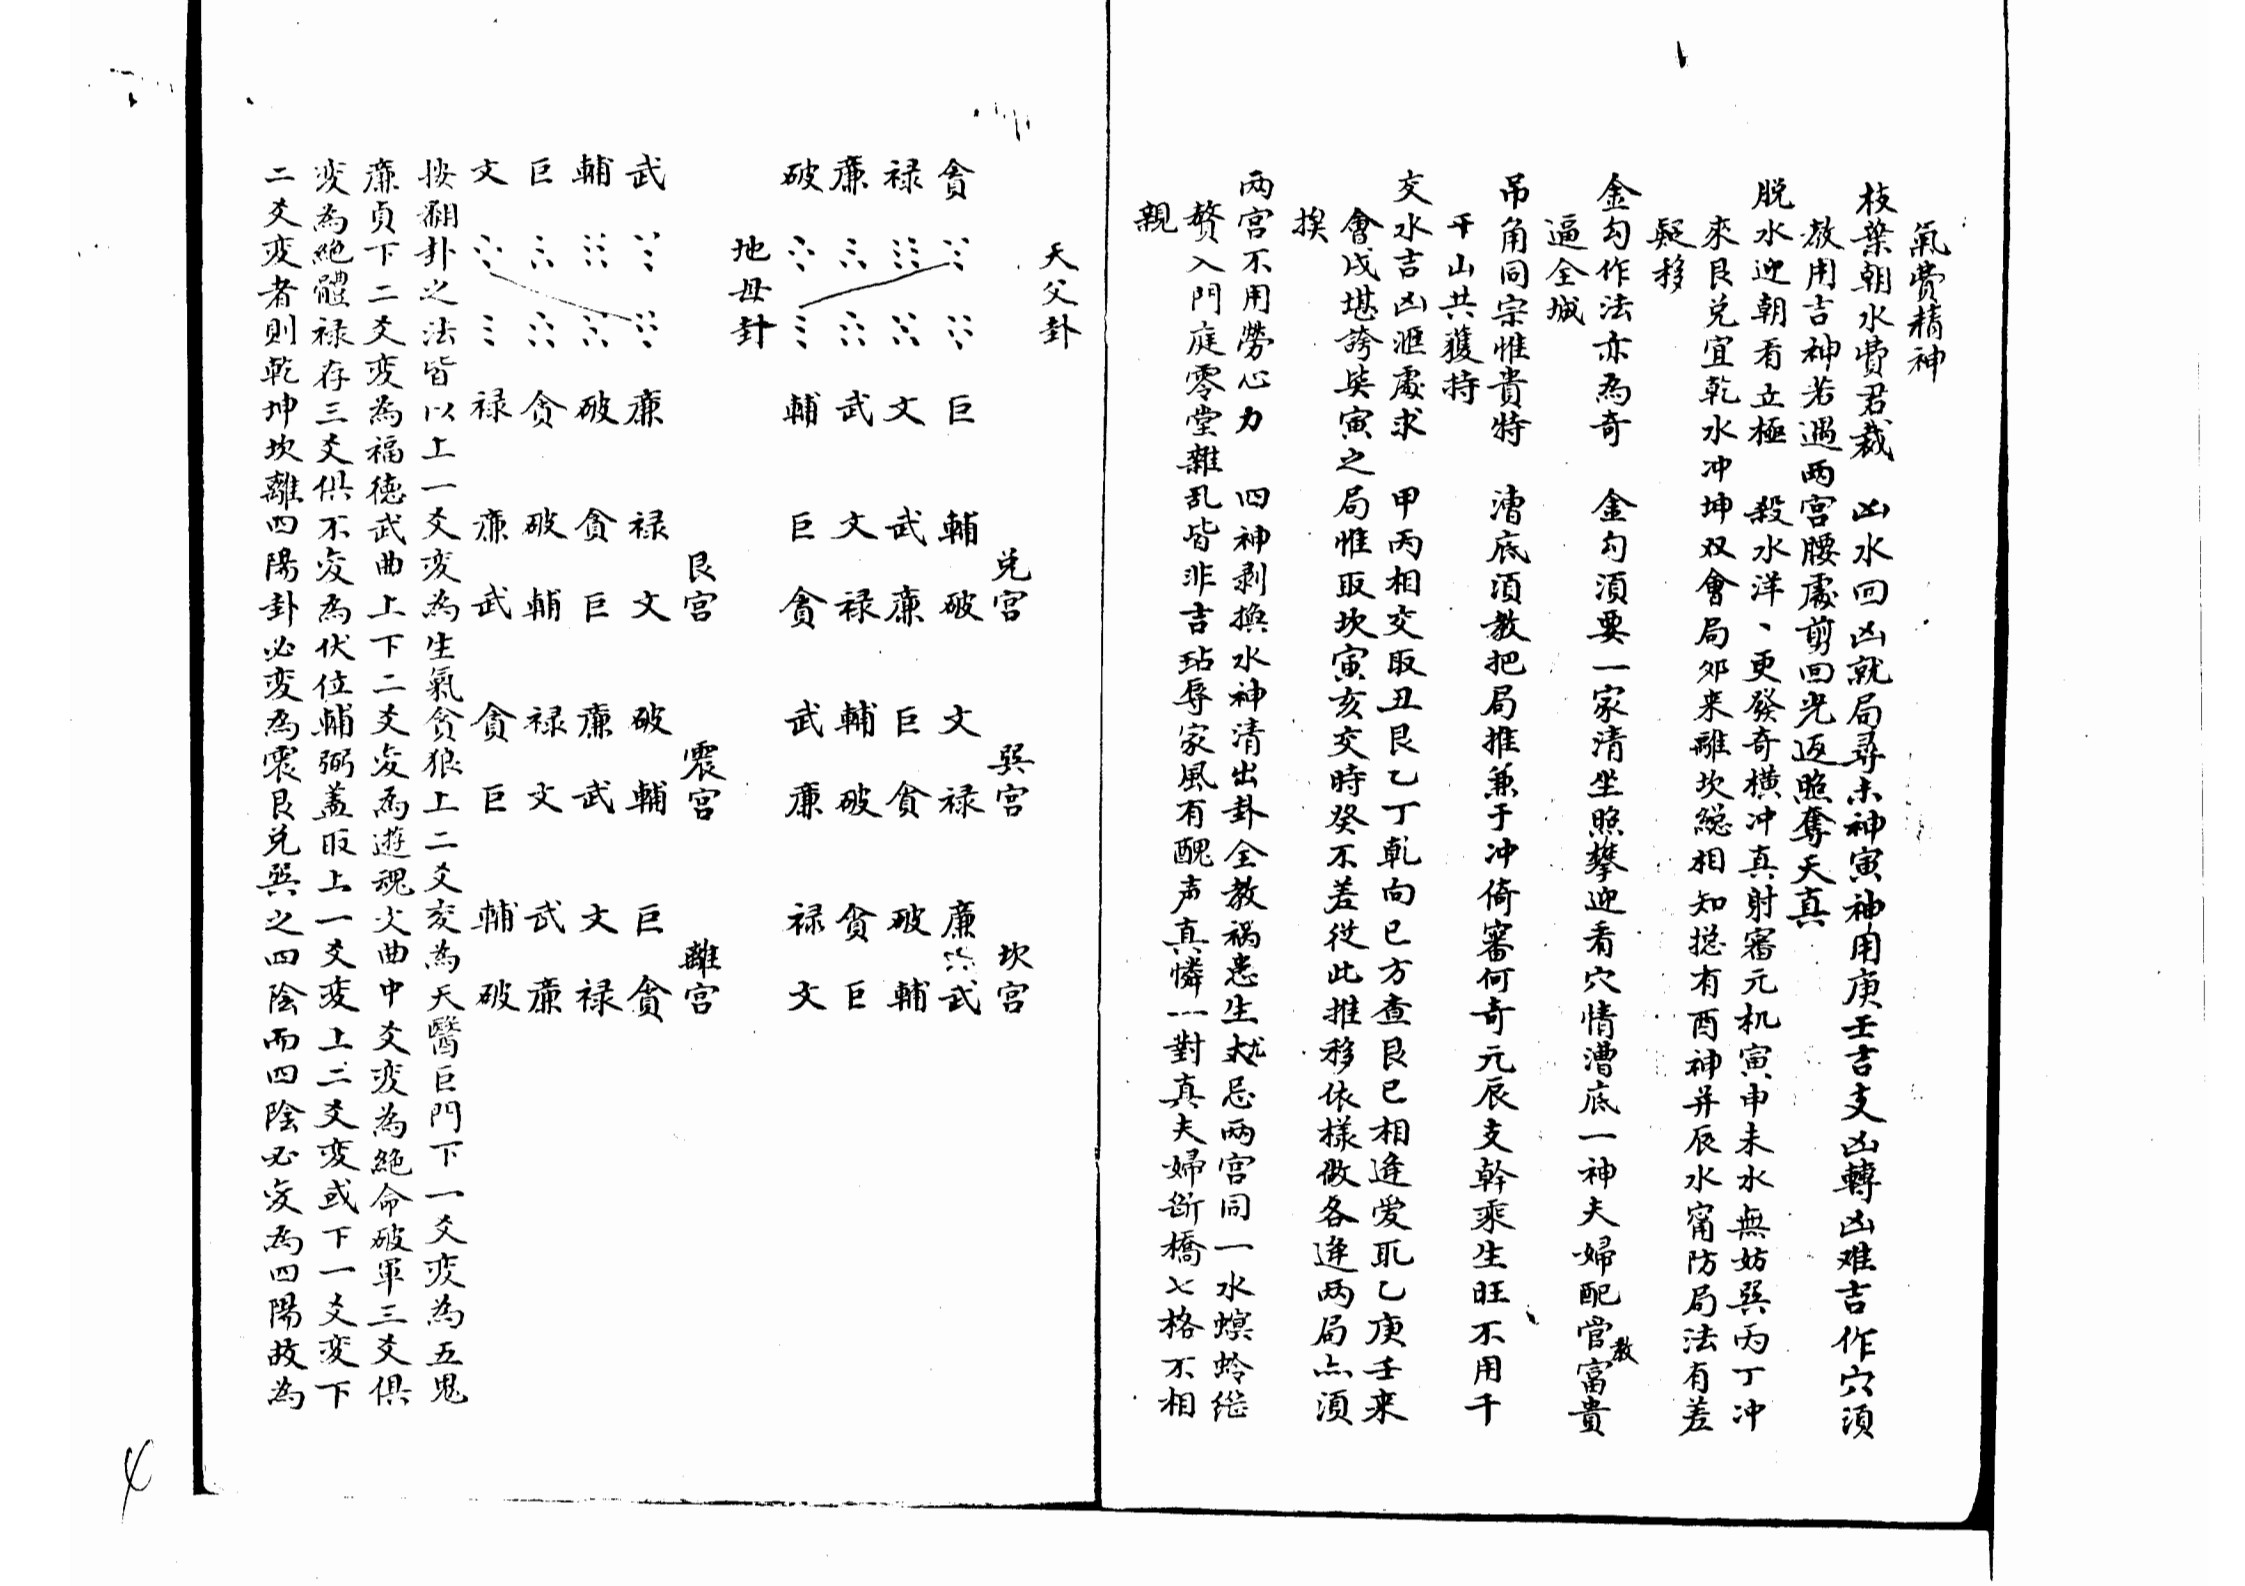 氣費精神
枝葉朝水費君裁　凶水回凶就局尋未神寅神用庚壬吉支凶轉凶难吉作穴須
教用吉神若遇两宫腰處剪回光返照奪天真
脱水迎朝看立極　殺水洋丶更發奇橫冲真射審元机寅申未水無妨巽丙丁冲
來艮兑宜乾水冲坤双會局邜来離坎総相知捴有酉神并辰水甯防局法有差
疑移
金勾作法亦為奇　金勾須要一家清坐照攀迎看穴情漕底一神夫婦配官教富貴
逼全城
吊角同宗惟貴特　漕底須教把局推兼于冲倚審何奇元辰支幹乘生旺不用千
千山共獲持
交水吉凶滙處求　甲丙相交取丑艮乙丁乹向巳方查艮巳相逢爱耴乙庚壬来
會戌堪誇癸寅之局惟取坎寅亥交時癸不差從此推移依樣做各逢两局点須
挨
两宫不用勞心力　四神剥換水神清出卦全教禍患生尤忌两宫同一水螟蛉継
贅入門庭零堂雜乱皆非吉玷辱家風有醜声真憐一對真夫婦斷橋七格不相
親
天父卦
兑宫　巽宫　坎宫
貪　巨　輔　破　文　禄　廉　武
禄　文　武　廉　巨　貪　破　輔
廉　武　文　禄　輔　破　貪　巨
破　輔　巨　貪　武　廉　禄　文
地母卦
艮宫　震宫　離宫
武　廉　禄　文　破　輔　巨　貪
輔　破　貪　巨　廉　武　文　禄
巨　貪　破　輔　禄　文　武　廉
文　禄　廉　武　貪　巨　輔　破
按翻卦之法皆以上一爻変為生氣貪狼上二爻変為天醫巨門下一爻変為五鬼
廉貞下二爻変為福德武曲上下二爻変為遊魂文曲中爻変為絶命破軍三爻俱
変為絶體禄存三爻俱不変為伏位輔弼盖取上一爻変上二爻変或下一爻変下
二爻変者則乾坤坎離四陽卦必変為震艮兑巽之四陰而四陰必変為四陽故為